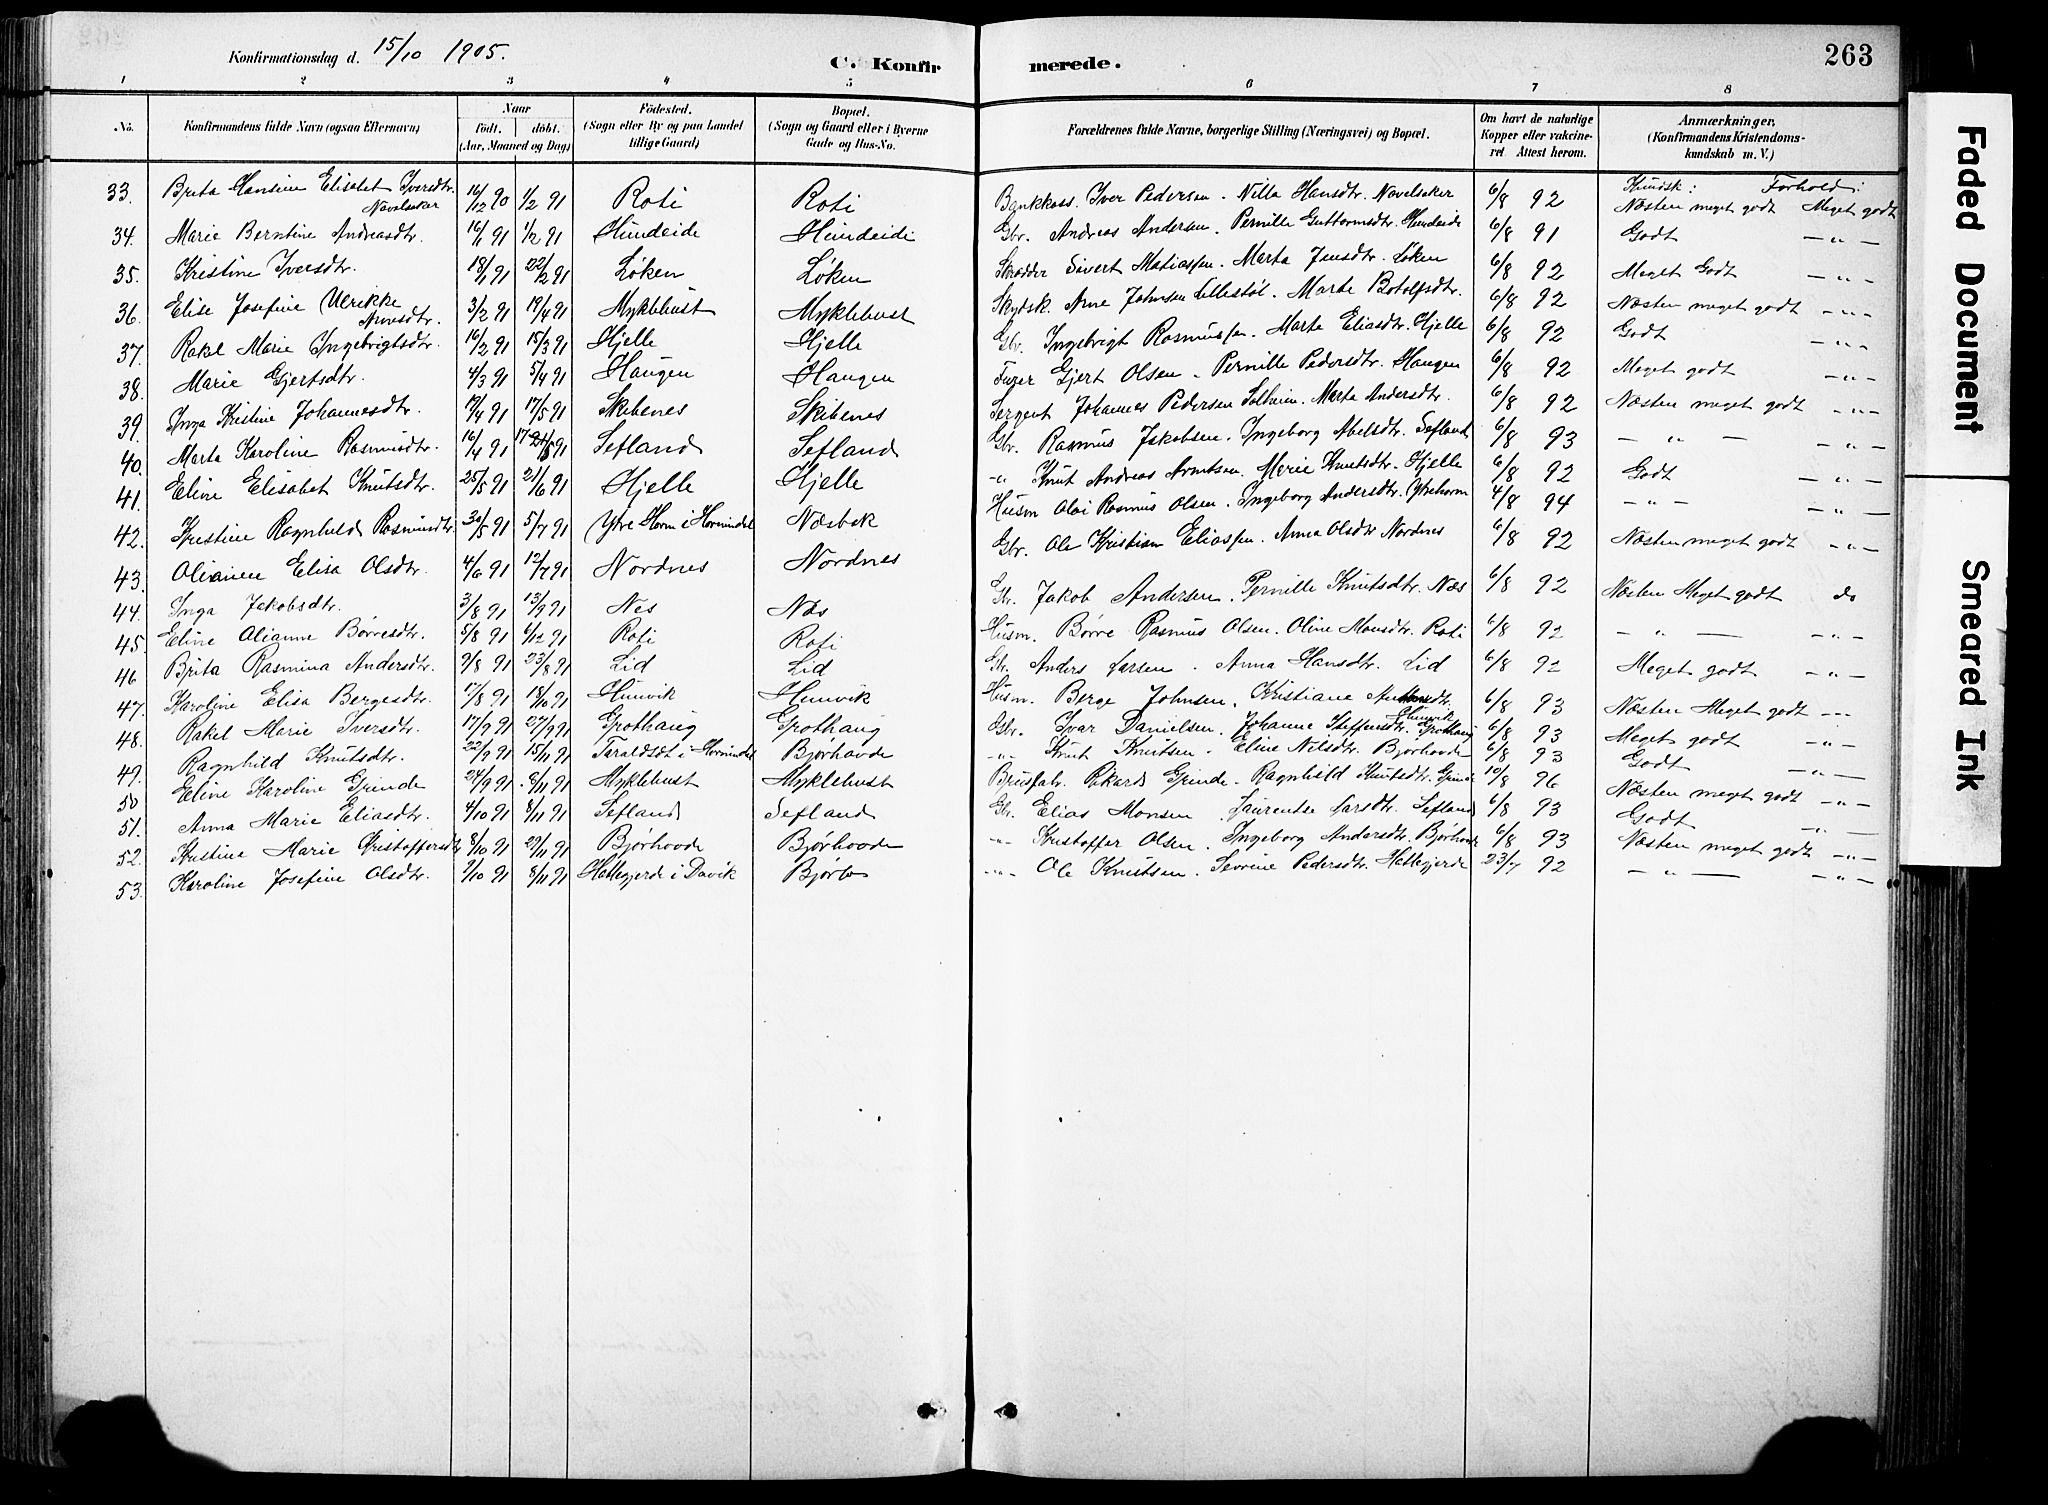 Konfirmationsdag d. 15/10 1905. C. Konfir merede. 263
1 2 3 4 5 6 7 8
No. Konfirmandens fulde Navn (ogsaa Efternavn) Naar födt. döbt. (Aar, Maaned og Dag) Födested. (Sogn eller By og paa Landet tillige Gaard) Bopæl. (Sogn og Gaard eller i Byerne Gade og Hus-No. Forældrenes fulde Navne, borgerlige Stilling (Næringsvei) og Bopæl. Om havt de naturlige Kopper eller vakcineret Attest herom. Anmærkninger, (Konfirmandens Kristendomskundskab m. V.)
Kundsk: Forhold:
33. Brita Hansine Elisabet Iversdtr. Navelsaker 16/12 90 1/2 91 Roti Roti Bankkass. Iver Pedersen. Nilla Hansdtr. Navelsaker 6/8 92 Næsten meget godt Meget godt
34. Marie Berntine Andreasdtr. 16/1 91 1/2 91 Hundeide Hundeide Gbr. Andreas Andersen. Pernille Guttormsdtr. Hundeide 6/8 91 Godt -"-
35. Kristine Iversdtr. 18/1 91 22/2 91 Løken Løken Skrædder Sivert Matiassen. Marta Jensdtr. Løken 6/8 92 Meget Godt -"-
36. Elise Josefine Ulrikke Arnesdtr. 3/2 91 19/4 91 Myklebust Myklebust Skydsk. Arne Johnsen Lillestöl. Marte Botolfsdtr. 6/8 92 Næsten meget godt -"-
37. Rakel Marie Ingebrigtsdtr. 16/2 91 15/3 91 Hjelle Hjelle Gbr. Ingebrigt Rasmussen. Marta Eliasdtr. Hjelle 6/8 92 Godt -"-
38. Marie Gjertsdtr. 4/3 91 5/4 91 Haugen Haugen Gjert Olsen. Pernille Pedersdtr. Haugen 6/8 92 Meget godt -"-
39. Inga Kristine Johannesdtr. 19/4 91 17/5 91 Skibenes Skibenes Sergent Johannes Pedersen Solheim. Marta Andersdtr. 6/8 92 Næsten meget godt -"-
40. Marta Karoline Rasmusdtr. 16/4 91 91 Sefland Sefland Gbr. Rasmus Jakobsen. Ingeborg Abelsdtr. Sefland 6/8 93 - " - -"-
41. Eline Elisabet Knutsdtr. 25/5 91 21/6 91 Hjelle Hjelle -"- Knut Andreas Arntsen. Marie Knutsdtr. Hjelle 6/8 92 Godt -"-
42. Kristine Ragnhild Rasmusdtr. 30/5 91 5/7 91 Ytre Horn i Hornindal Næsbak Husm Olai Rasmus Olsen. Ingeborg Andersdtr. Ytrehorn 4/8 94 -"- -"-
43. Olianne Elisa Olsdtr. 4/6 91 12/7 91 Nordnes Nordnes Gbr. Ole Kristian Eliassen. Anna Olsdtr Nordnes 6/8 92 Næsten meget godt -"-
44. Inga Jakobsdtr. 3/8 91 13/9 91 Nes Næs Gbr. Jakob Andersen. Pernille Knutsdtr. Næs 6/8 92 Næsten Meget godt do
45. Eline Olianne Børresdtr. 5/8 91 6/12 91 Roti Roti Husm. Børre Rasmus Olsen. Oline Monsdtr. Roti 6/8 92 - " - -"-
46 Brita Rasmina Andersdtr. 9/8 91 23/8 91 Lid Lid Gbr. Anders Larsen. Anna Hansdtr. Lid 6/8 92 Meget godt -"-
47. Karoline Elisa Bergesdtr. 17/8 91 18/10 91 Hunvik Hunvik Husm. Berge Johnsen. Kristiane Hunvik 6/8 93 Næsten Meget godt -"-
48. Rakel Marie Iversdtr. 17/9 91 27/9 91 Grothaug Grothaug Gbr. Ivar Danielsen. Johanne Steffensdtr. Grothaug 6/8 93 Meget godt -"-
49. Ragnhild Knutsdtr. 22/9 91 15/11 91 Taraldset i Hornindal Bjørhovde -"- Knut Knutsen. Eline Nilsdtr. Bjørhovde 6/8 93 Godt -"-
50 Eline Karoline Grinde 24/9 91 8/11 91 Myklebust Myklebust Brusfabr. Rikard Grinde. Ragnhild Knutsdtr. Grinde 10/8 96 Næsten meget godt -"-
51. Anna Marie Eliasdtr. 4/10 91 8/11 91 Sefland Sefland Gbr. Elias Monsen. Laurentse Larsdtr. Sefland 6/8 93 Godt -"-
52. Kristine Marie Kristoffersdtr 8/10 91 29/11 91 Bjørhovde Bjørhovde -"- Kristoffer Olsen. Ingeborg Andersdtr. Bjørhovde 6/8 93 Næsten meget godt -"-
53. Karoline Josefine Olsdtr. 9/10 91 8/11 91 Hattegjerde i Davik Bjørlo -"- Ole Knutsen. Severine Pedersdtr. Hattegjerde 23/7 92 - " - -"-
Faded Document
Smeared Ink